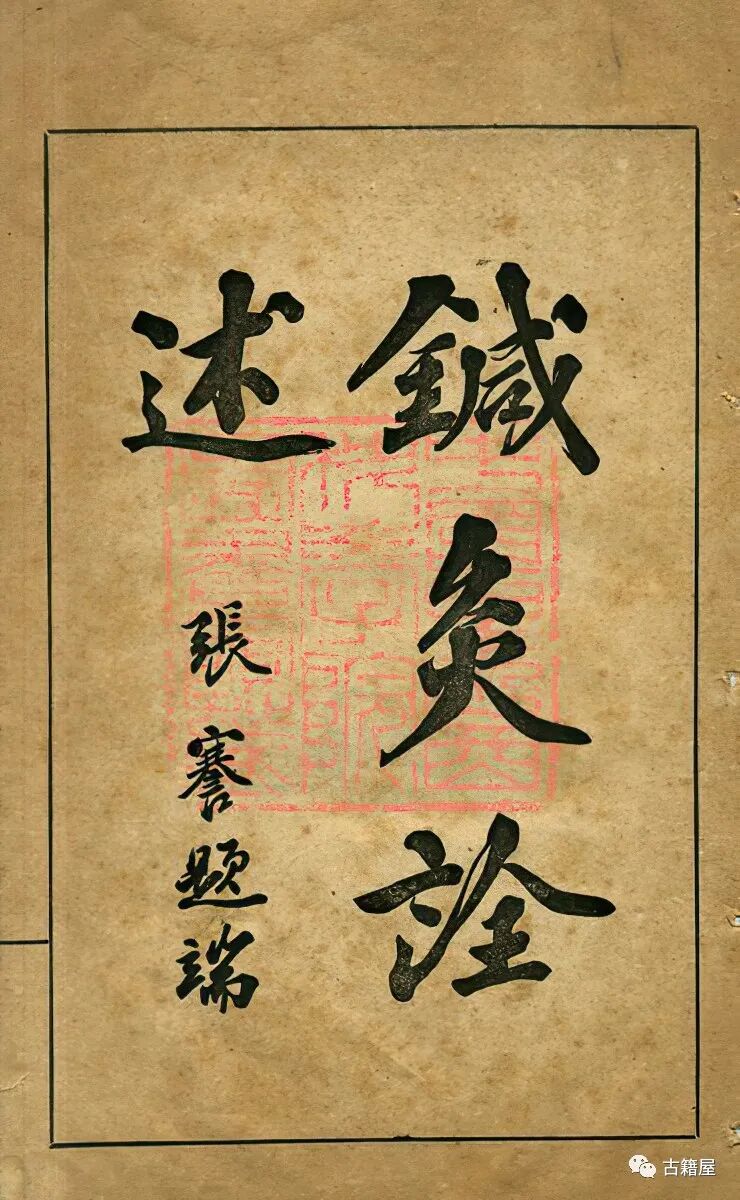 鍼灸詮
述
張謇題端
古籍屋